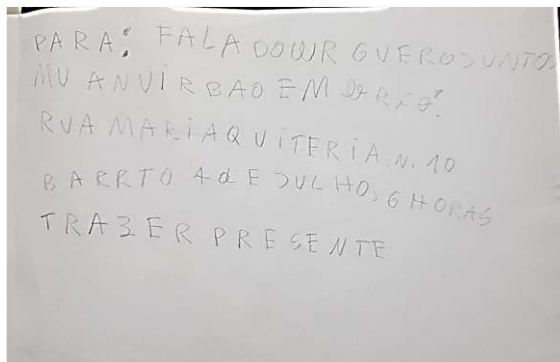 PARA: FALADOWR GUEROJUNTO
MU ANVIRBAO EM
RUA MARIAQUITERIA, N. 10
BARRTO 4 DE JULHO, 6 HORAS
TRAZER PRESENTE